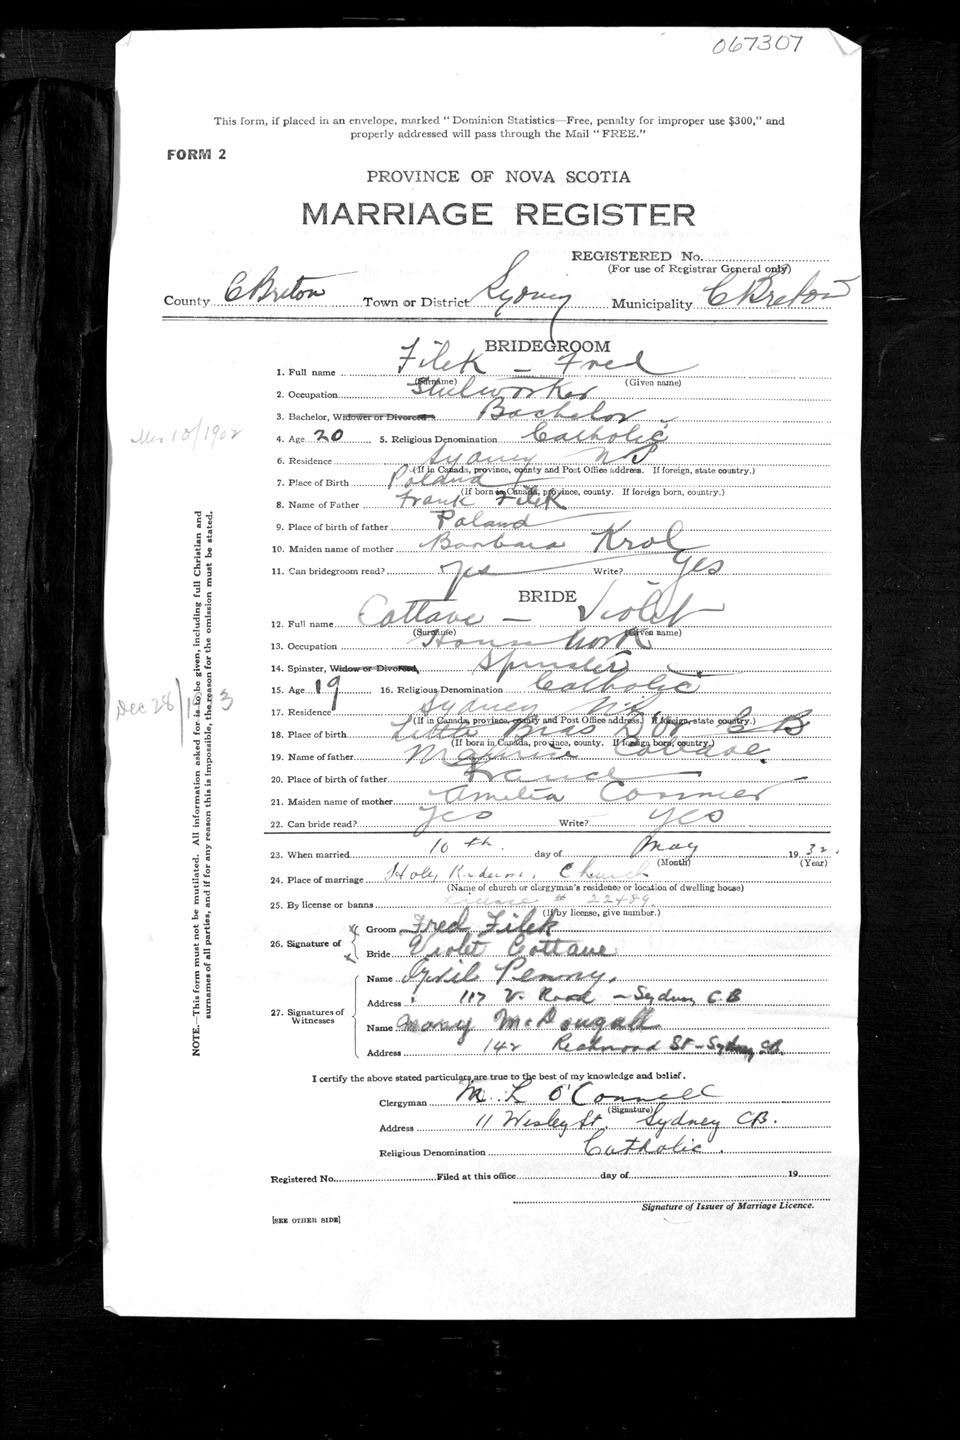 067307
This form, if placed in an envelope, marked "Dominion Statistics—Free, penalty for improper use $300," and
properly addressed will pass through the Mail "FREE."
FORM 2
PROVINCE OF NOVA SCOTIA
MARRIAGE REGISTER
REGISTERED No.
(For use of Registrar General only)
County C Breton Town or District Sydney Municipality C Breton
BRIDEGROOM
1. Full name Filek – Fred
(Surname) (Given name)
2. Occupation Steelworker
3. Bachelor, Widower or Divorced Bachelor
4. Age 20 5. Religious Denomination Catholic
10/1902
6. Residence Sydney N.S
(If in Canada, province, county and Post Office address. If foreign, state country.)
7. Place of Birth Poland
(If born in Canada, province, county. If foreign born, country.)
8. Name of Father Frank Filek
9. Place of birth of father Poland
10. Maiden name of mother Barbara Krol
11. Can bridegroom read? Yes Write? Yes
BRIDE
12. Full name Cottave – Violet
(Surname) (Given name)
13. Occupation House Work
14. Spinster, Widow or Divorced, Spinster
15. Age 19 16. Religious Denomination Catholic
Dec 28
17. Residence Sydney N.S
(If in Canada, province, county and Post Office address. If foreign, state country.)
18. Place of birth Little Bras D'or C B
(If born in Canada, province, county. If foreign born, country.)
19. Name of father Cottave
20. Place of birth of father France
21. Maiden name of mother Amelia Cormier
22. Can bride read? Yes Write? Yes
23. When married 10 th. day of May 19 32.
(Month) (Year)
24. Place of marriage Holy Redeem. Church
(Name of church or clergyman's residence or location of dwelling house)
25. By license or banns License # 22489
(If by license, give number.)
26. Signature of
Groom Fred Filek
Bride Violet Cottave
27. Signatures of Witnesses
Name Penny.
Address 117 V. Road – Sydney C.B
Name Mary McDougall
Address 142 Richmond St – Sydney C.B.
I certify the above stated particulars are true to the best of my knowledge and belief.
Clergyman M. L O'Connell
(Signature)
Address 11 Wesley St. Sydney CB.
Religious Denomination Catholic.
Registered No. Filed at this office day of 19
Signature of Issuer of Marriage Licence.
[SEE OTHER SIDE]
NOTE.—This form must not be mutilated. All information asked for is to be given, including full Christian and
surnames of all parties, and if for any reason this is impossible, the reason for the omission must be stated.